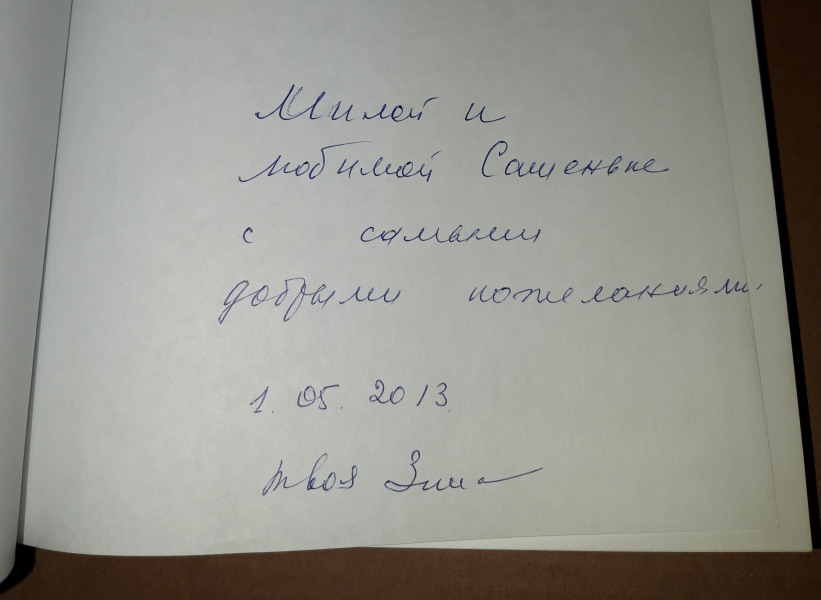 Милой и
любимой Сашеньке
с самыми
добрыми пожеланиями.
1. 05. 2013.
твоя